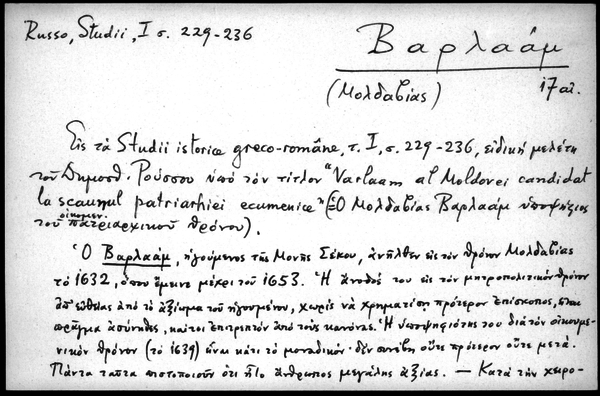 Russo, Studii, I σ. 229-236
Βαρλαάμ
(Μολδαβίας) 17 αἰ.
Εἰς τὰ Studii istorice greco-române, τ. I, σ. 229-236, εἰδικὴ μελέτη
τοῦ Δημοσθ. Ρούσσου ὑπὸ τὸν τίτλον "Varlaam al Moldovei candidat
la scaunul patriarhiei ecumenice" (=Ὁ Μολδαβίας Βαρλαὰμ ὑποψήφιος
τοῦ οἰκουμεν. πατριαρχικοῦ θρόνου).
Ὁ Βαρλαάμ, ἡγούμενος τῆς Μονῆς Σέκου, ἀνῆλθεν εἰς τὸν θρόνον Μολδαβίας
τὸ 1632, ὅπου ἔμεινε μέχρι τοῦ 1653. Ἡ ἄνοδός του εἰς τὸν μητροπολιτικὸν θρόνον
ἀπ' εὐθείας ἀπὸ τὸ ἀξίωμα τοῦ ἡγουμένου, χωρὶς νὰ χρηματίσῃ πρότερον ἐπίσκοπος, εἶναι
πρᾶγμα ἀσύνηθες, καίτοι ἐπιτρεπτὸν ἀπὸ τοὺς κανόνας. Ἡ ὑποψηφιότης του διὰ τὸν οἰκουμε-
νικὸν θρόνον (τὸ 1639) εἶναι κάτι τὸ μοναδικόν· δὲν συνέβη οὔτε πρότερον οὔτε μετά.
Πάντα ταῦτα πιστοποιοῦν ὅτι ἦτο ἄνθρωπος μεγάλης ἀξίας. — Κατὰ τὴν χειρο-